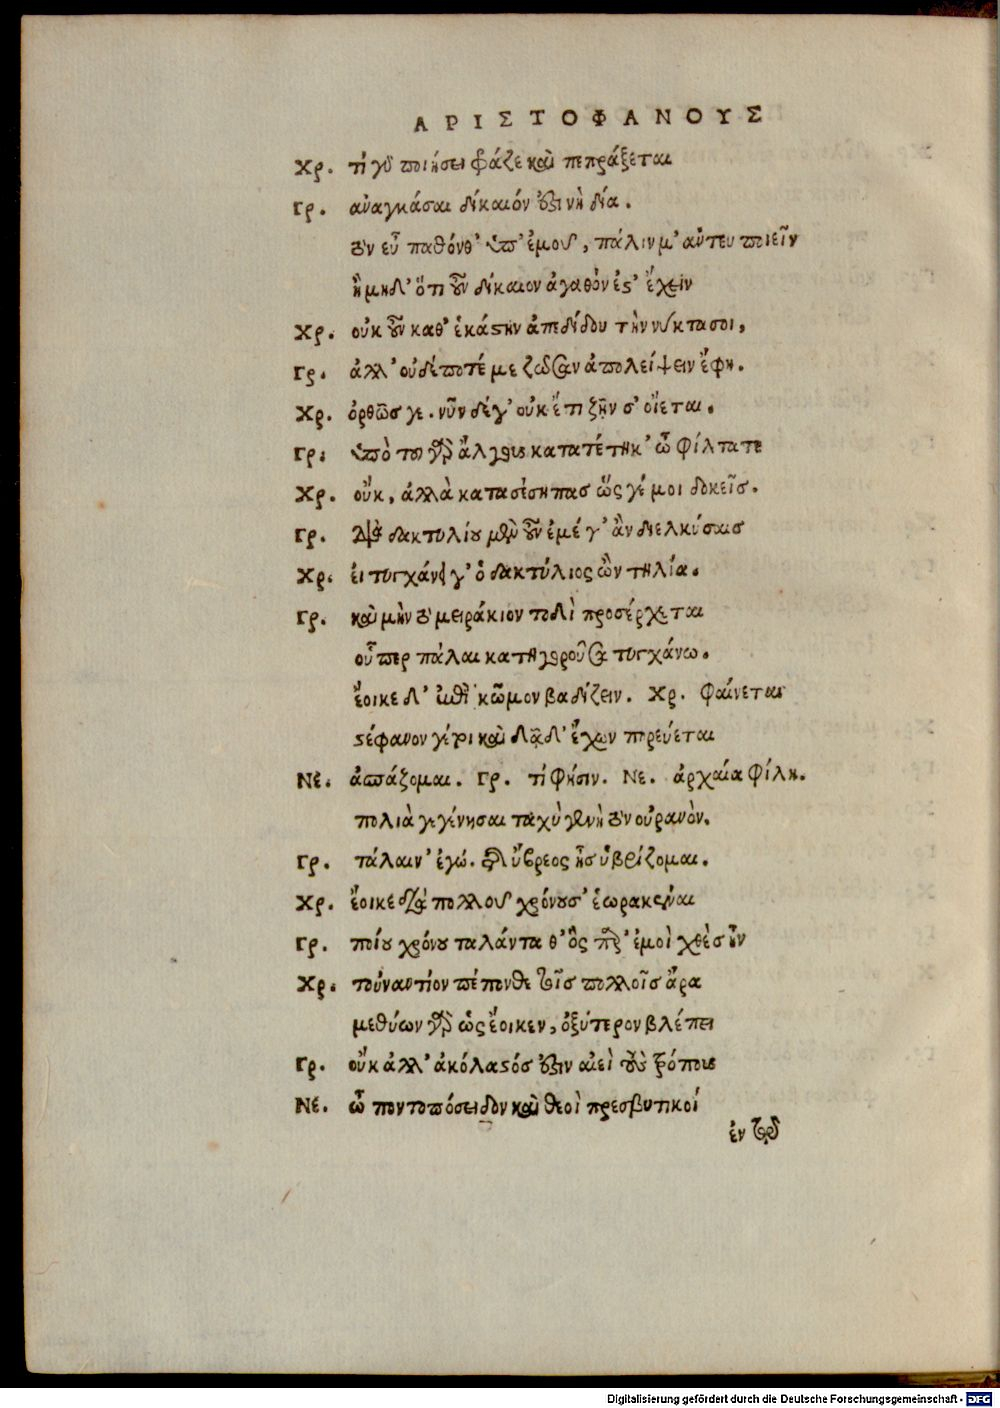 ΑΡΙΣΤΟΦΑΝΟΥΣ
Χρ. τί γὸ ποιήσει φράζε καὶ πεπράξεται
Γρ. αναγκάσαι δίκαιόν ἐστι νὴ δία.
τὸν εὖ παθόνθ' ὑπ' ἐμοῦ, πάλιν μ' αὖτευ ποιεῖν
ἢ μηδ' ὅτι οὖν δίκαιον ἀγαθὸν ἐς' ἔχειν
Χρ. οὐκ οὖν καθ' ἑκάστην ἀπεδίδου τὴν νύκτα σοι,
Γρ. ἀλλ' οὐδέποτέ με ζῶσαν ἀπολείψειν ἔφη.
Χρ. ὀρθῶσ γε. νῦν δέ γ' οὐκ ἔτι ζῆν σ' οἴεται.
Γρ: ὑπὸ του γὰρ ἄλγους κατατέτηκ' ὦ φίλτατε
Χρ. οὔκ, ἀλλὰ κατασέσηπασ ὥς γέ μοι δοκεῖσ.
Γρ. Διὰ δακτυλίου μὲν οὖν ἐμέ γ' ἂν διελκύσαισ
Χρ. εἰ τυγχάνει γ' ὁ δακτύλιος ὢν τηλία.
Γρ. καὶ μὴν τὸ μειράκιον τοδὶ προσέρχεται
οὗπερ πάλαι κατηγοροῦσα τυγχάνω.
ἔοικε δ' ἐπὶ κῶμον βαδίζειν. Χρ. φαίνεται
στέφανον γέ τοι καὶ δᾷδ' ἔχων πορεύεται
Νέ. ἀσπάζομαι. Γρ. τί φησιν. Νε. ἀρχαία φίλη.
πολιὰ γεγένησαι ταχὺ γε νὴ τὸν οὐρανὸν.
Γρ. τάλαιν' ἐγώ. τῆς ὕβρεος ἧσ ὑβρίζομαι.
Χρ. ἔοικε διὰ πολλοῦ χρόνου σ' ἑωρακέναι
Γρ. ποίου χρόνου ταλάντα θ' ὃς παρ' ἐμοὶ χθὲσ ἦν
Χρ. τοὐναντίον πέπονθε τοῖσ πολλοῖσ ἄρα
μεθύων γὰρ ὡς ἔοικεν, ὀξύτερον βλέπει
Γρ. οὔκ ἀλλ' ἀκόλαστόσ ἐστιν αἰεὶ τοὺς τρόπους
Νέ. ὦ ποντοπόσειδον καὶ θεοὶ πρεσβυτικοί
ἐν τῷ
Digitalisierung gefördert durch die Deutsche Forschungsgemeinschaft - DFG